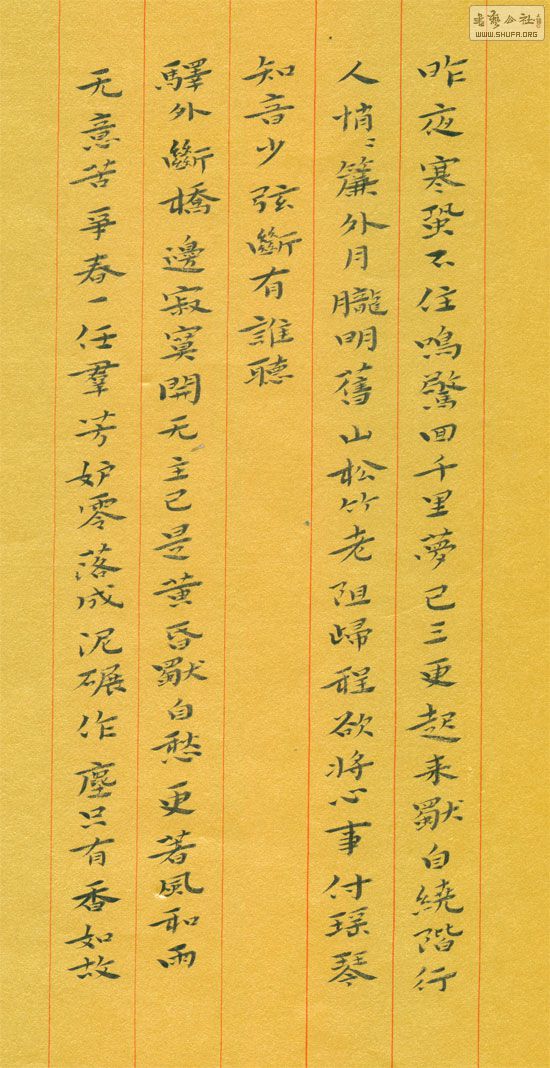 昨夜寒蛩不住鳴驚回千里夢已三更起来獨自繞階行
人悄〻簾外月朧明舊山松竹老阻歸程欲將心事付瑶琴
知音少弦斷有誰聽
驛外斷橋邊寂寞開无主已是黄昏獨自愁更著風和雨
无意苦爭春一任羣芳妒零落成泥碾作塵只有香如故
書藝公社
WWW.SHUFA.ORG